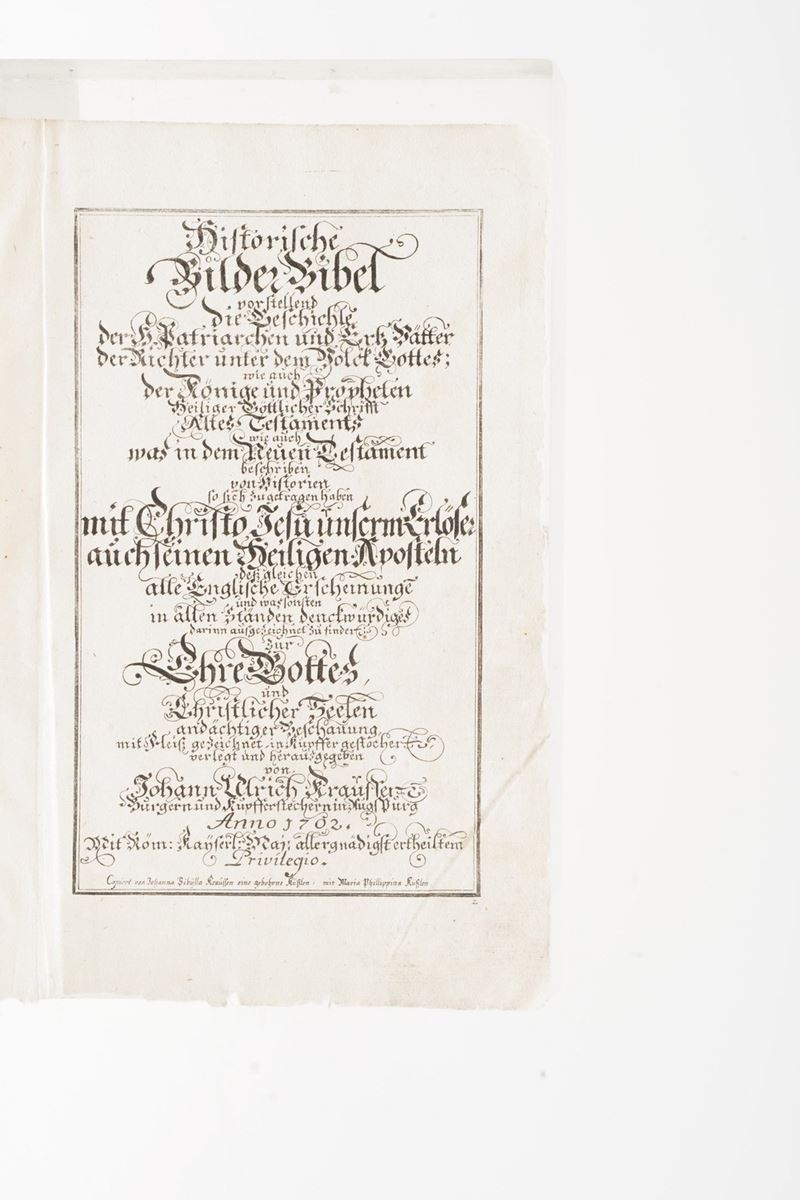 Historische
Bilder Bibel
vorstellend
die Geschichte
der H. Patriarchen und Ertz Vätter
der Richter unter dem Volck Gottes;
wie auch
der Könige und Propheten
Heiliger Göttlicher Schrifft
Altes Testaments
wie auch
was in dem Neuen Testament
beschriben
von Historien
so sich zugetragen haben
mit Christo Jesu unserm Erlöser
auch seinen Heiligen Aposteln
deß gleichen
alle Englische Erscheinunge
und was sonsten
in allen Ständen denckwürdiges
darinn aufgezeichnet zu finden
Zur
Ehre Gottes,
und
Christlicher Seelen
andächtiger Beschauung
mit Fleiß gezeichnet, in Kupffer gestochen
verlegt und herausgegeben
von
Johann Ulrich Kraussen
Burgern und Kupfferstechern in Augspurg
Anno 1702.
Mit Röm: Kayserl: Maj: allergnädigst ertheiltem
Privilegio.
Copiert von Johanna Sibylla Kraussen eine gebohrne Küslen, mit Maria Phillippina Küslen